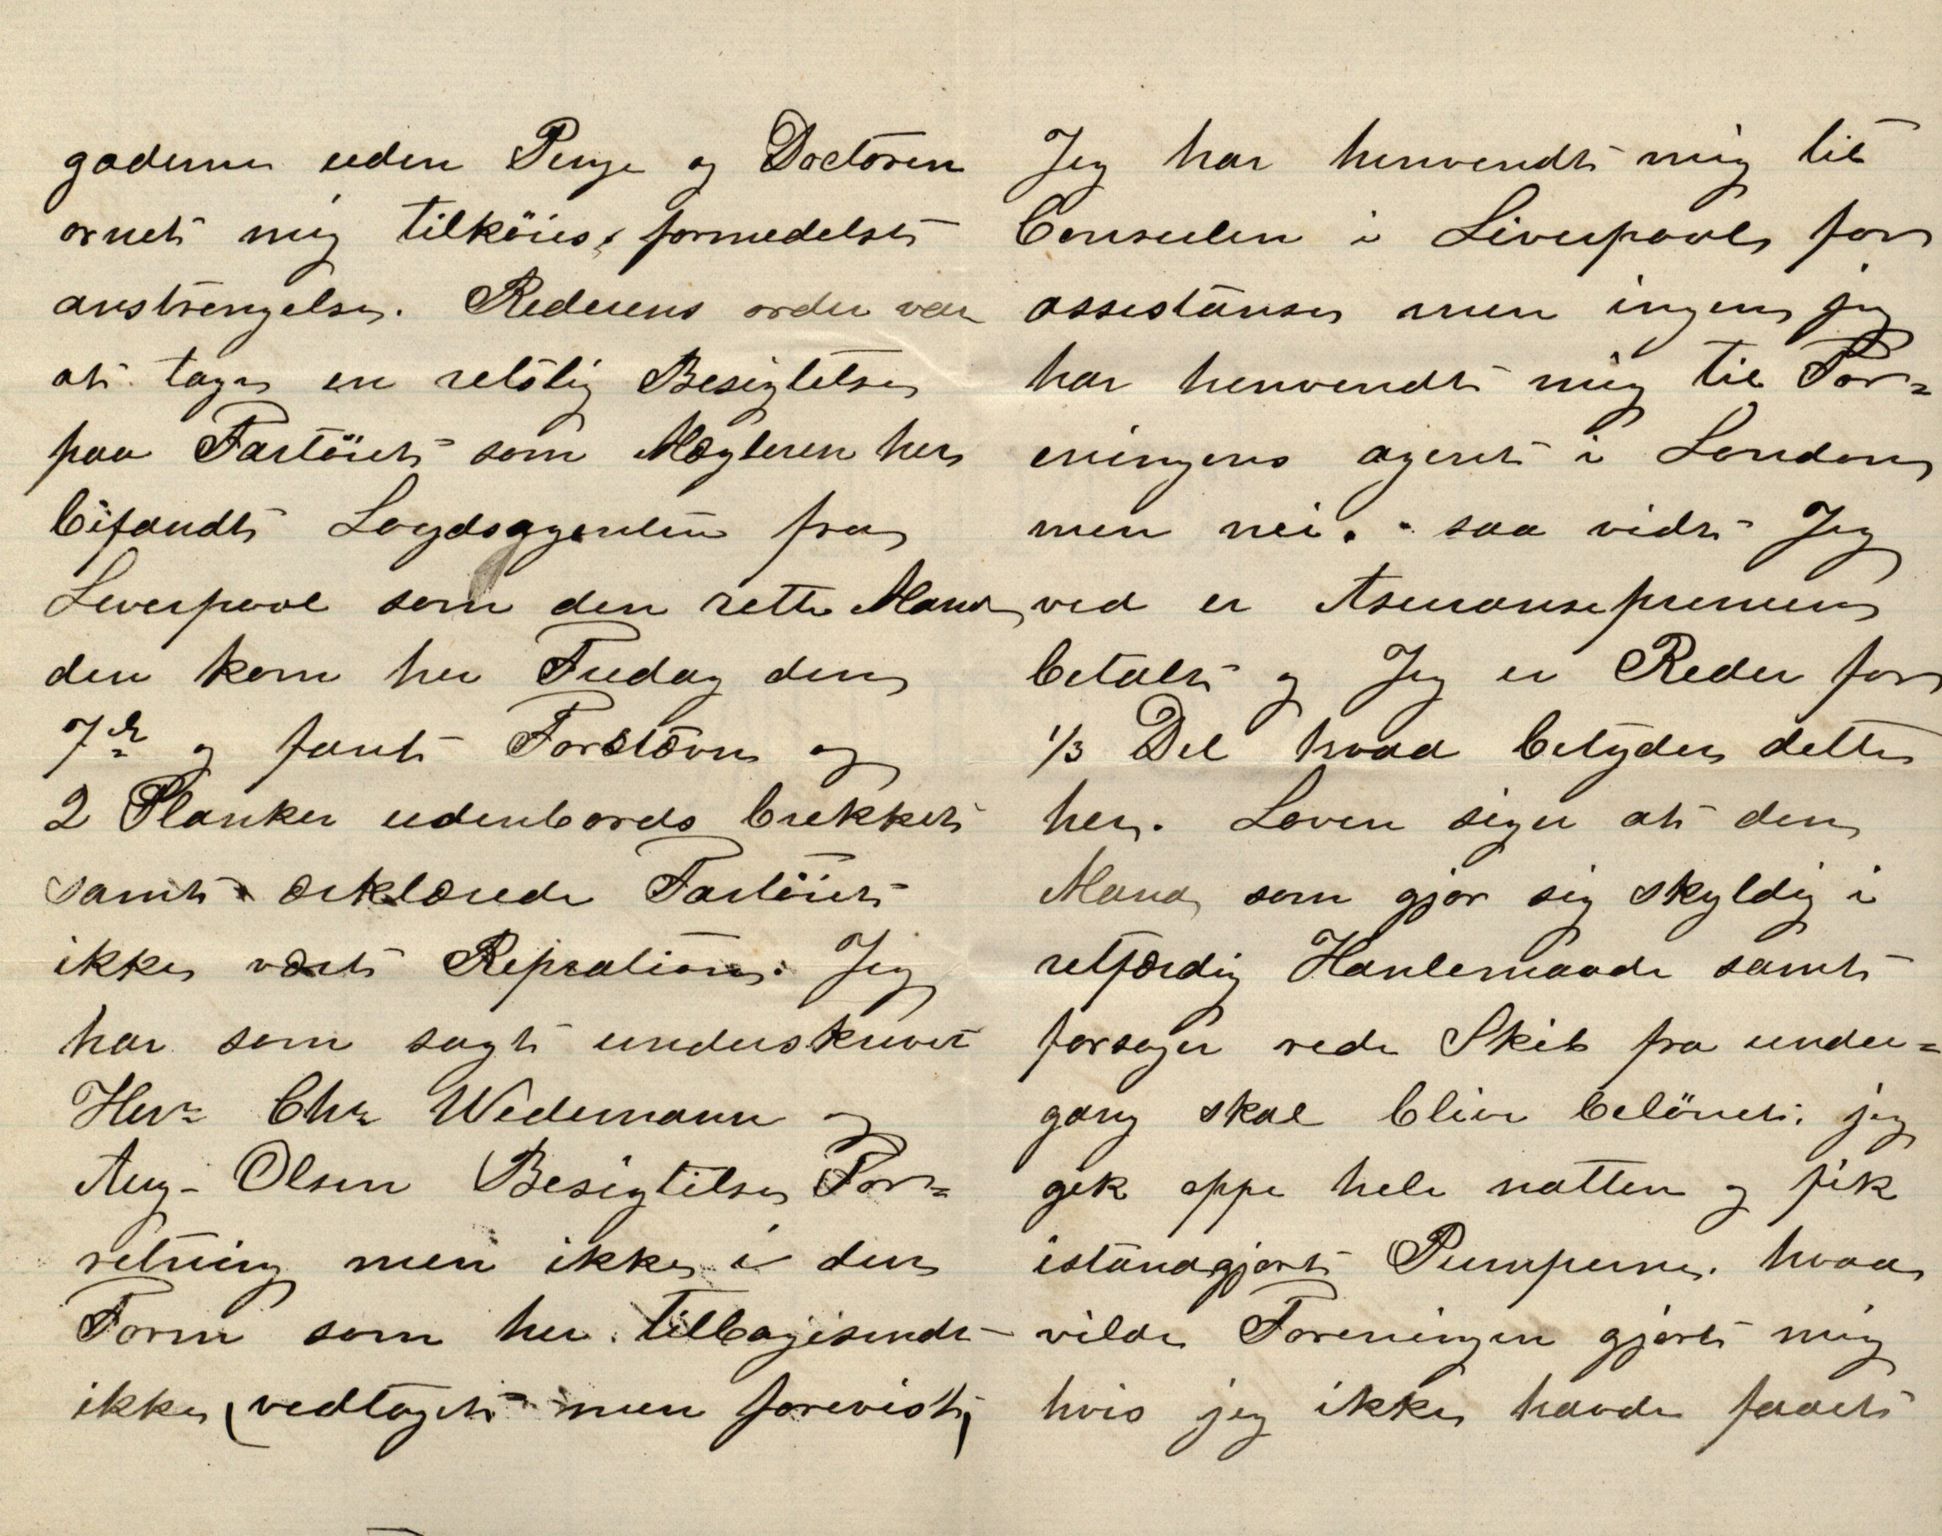 gaderne uden Penge og Doctoren
ornet mig tilköies formedelst
anstrengelse. Rederens order var
at tage en retslig Besigtelse
paa Fartöiet som Mægleren her
bifandt Loydsagenten fra
Liverpool som den rette Mand
den kom her Fredag den
7de og fant Forstævn og
2 Planker udenbords brekket
samt ærklærede Fartöiet
ikke vært Repration. Jeg
har som sagt underskrevet
Herr Chr Wedemann og
Aug- Olsen Besigtelse For=
retning men ikke i den
Form som her tilbagesendt
ikke (vedtaget men forevist)
Jeg har henvendt mig til
Consulen i Liverpool for
assistanse men ingen jeg
har henvendt mig til For=
eningens agent i London
men nei. saa vidt Jeg
ved er Assuransepremien
betalt og Jeg er Reder for
1/3 Del hvad betyder dette
her. Loven siger at den
Mand som gjör sig skyldig i
retfærdig Hanlemaade samt
forsøger rede Skib fra under=
gang skal blive belönet. jeg
gik oppe hele natten og fik
istandgjort Pumperne. hvad
vilde Foreningen gjort mig
hvis jeg ikke havde faaet